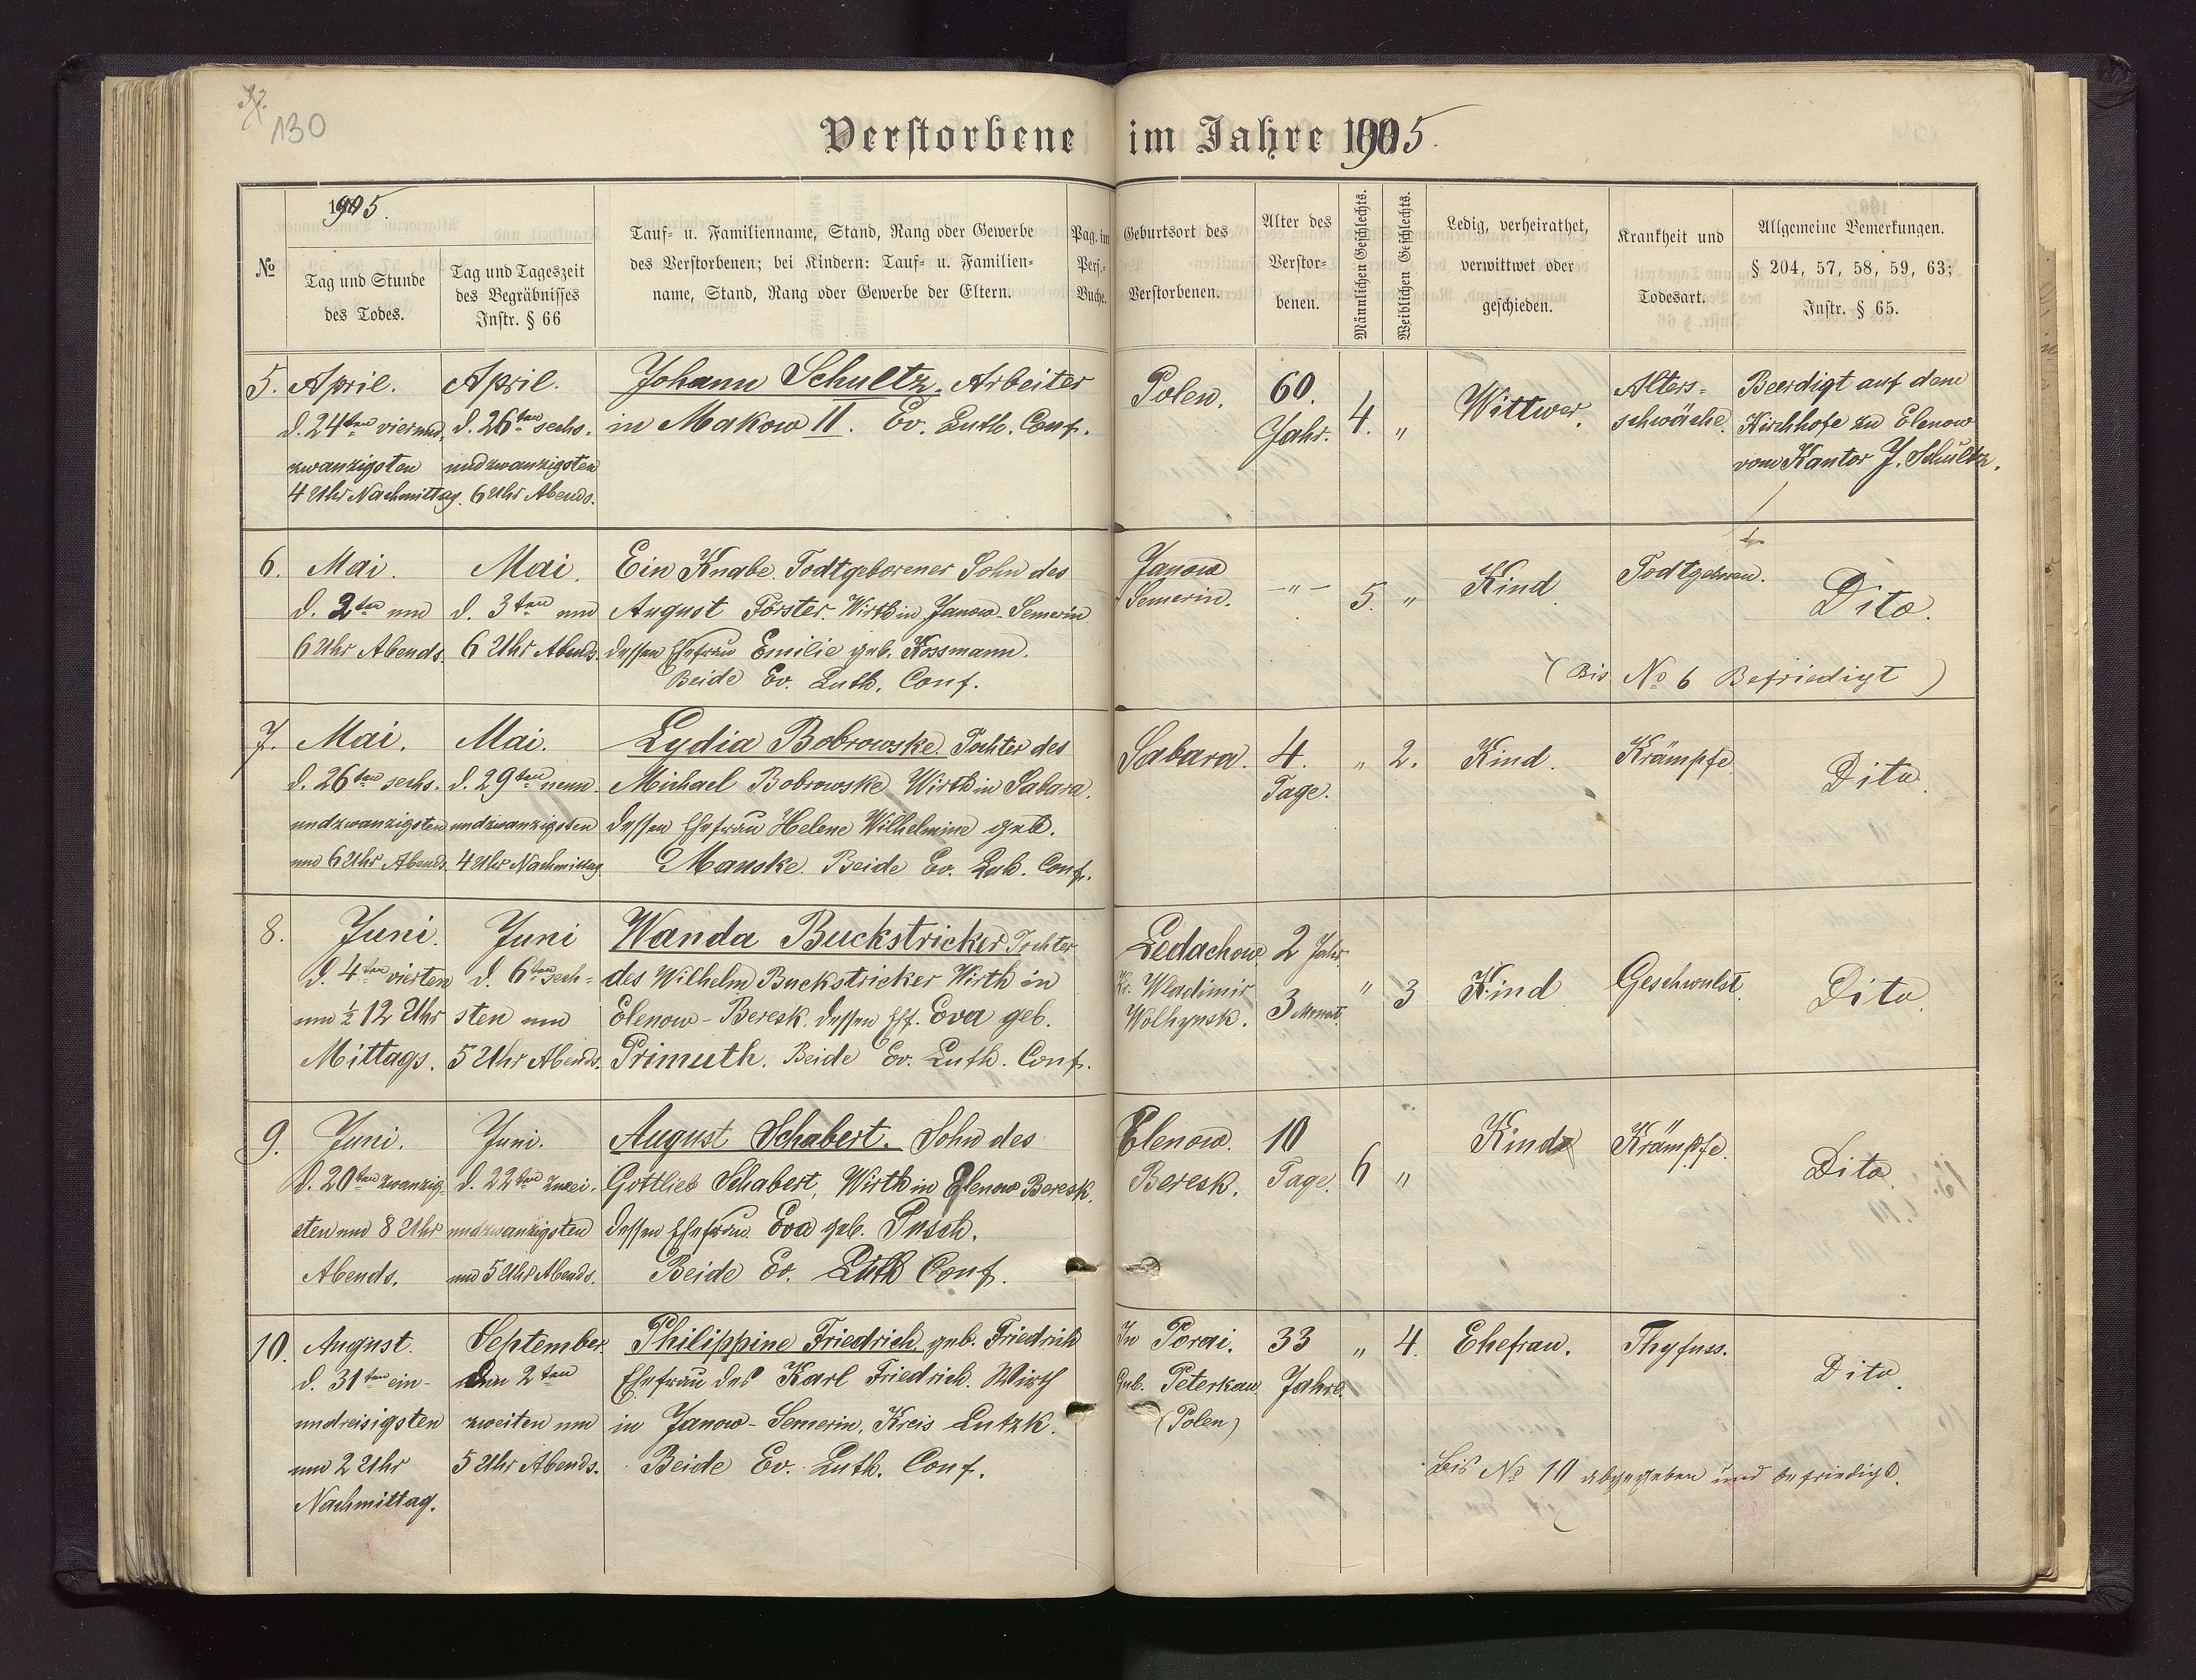 130
Verstorbene im Jahre 1905.
№
1905.
Tag und Stunde
des Todes.
Tag und Tageszeit
des Begräbnisses
Instr. § 66
Tauf- u. Familienname, Stand, Rang oder Gewerbe
des Verstorbenen; bei Kindern: Tauf- u. Familien-
name, Stand, Rang oder Gewerbe der Eltern.
Pag. im
Pers.-
Buche.
Geburtsort des
Verstorbenen.
Alter des
Verstor-
benen.
Männlichen Geschlechts.
Weiblichen Geschlechts.
Ledig, verheirathet,
verwittwet oder
geschieden.
Krankheit und
Todesart.
Allgemeine Bemerkungen.
§ 204, 57, 58, 59, 63;
Instr. § 65.
5.
April.
d. 24ten vierund-
zwanzigsten
4 Uhr Nachmittag.
April.
d. 26ten sechs-
undzwanzigsten
6 Uhr Abends.
Johann Schultz. Arbeiter
in Makow II. Ev. Luth. Conf.
Polen.
60.
Jahr.
4.
"
Wittwer.
Alters-
schwäche.
Beerdigt auf dem
Kirchhofe zu Elenow
vom Kantor J. Schultz.
6.
Mai.
d. 2ten um
6 Uhr Abends.
Mai.
d. 3ten um
6 Uhr Abends.
Ein Knabe. Todtgeborener Sohn des
August Förster. Wirth in Janow-Semerin
dessen Ehefrau Emilie geb. Kossmann.
Beide Ev. Luth. Conf.
Janow
Semerin.
-"-
5.
"
Kind.
Todtgeboren.
Dito.
(Bis № 6 Befriedigt)
7.
Mai.
d. 26ten sechs-
undzwanzigsten
um 6 Uhr Abends.
Mai.
d. 29ten neun-
undzwanzigsten
4 Uhr Nachmittag.
Lydia Bobrowske. Tochter des
Michael Bobrowske Wirth in Sabara.
dessen Ehefrau Helene Wilhelmine geb.
Manske. Beide Ev. Luh. Conf.
Sabara.
4.
Tage.
"
2.
Kind.
Krämpfe.
Dito.
8.
Juni.
d. 4ten vierten
um ½ 12 Uhr
Mittags.
Juni
d. 6ten sech-
sten um
5 Uhr Abends.
Wanda Buckstricker. Tochter
des Wilhelm Buckstricker Wirth in
Elenow-Beresk. dessen Ehf. Eva geb.
Primuth. Beide Ev. Luth. Conf.
Ledachow
Kr. Wladimir
Wolhynsk.
2 Jahr.
3 Monat.
"
3
Kind
Geschwulst.
Dito.
9.
Juni.
d. 20ten zwanzig-
sten um 8 Uhr
Abends.
Juni.
d. 22ten zwei-
undzwanzigsten
um 5 Uhr Abends.
August Schabert. Sohn des
Gottlieb Schabert, Wirth in Elenow Beresk.
dessen Ehefrau Eva geb. Pusch.
Beide Ev. Luth Conf.
Elenow.
Beresk.
10
Tage.
6
"
Kind
Krämpfe.
Dito.
10.
August.
d. 31ten ein-
undreisigsten
um 2 Uhr
Nachmittag.
September
den 2ten
zweiten um
5 Uhr Abends.
Philippine Friedrich. geb. Friedrich
Ehefrau des Karl Friedrich. Wirth
in Janow-Semerin, Kreis Lutzk.
Beide Ev. Luth. Conf.
In Porai.
Gub. Peterkau
(Polen)
33
Jahre.
"
4.
Ehefrau.
Thyfuss.
Dito.
Bis № 10 abgegeben und befriedigt.